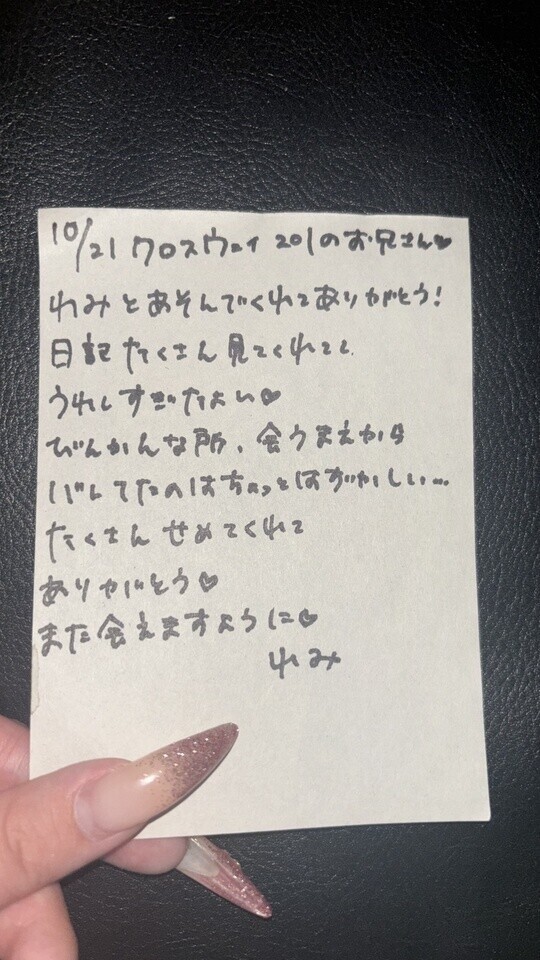 10/21 クロスウェイ 201のお兄さん♥
れみとあそんでくれてありがとう!
日記たくさん見てくれてて
うれしすぎたよい♡
びんかんな所、会うまえから
バレてたのはちょっとはずかしい...
たくさんせめてくれて
ありがとう♡
また会えますように♡
れみ